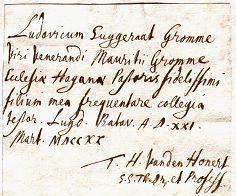 Ludovicum Euggeraat Gromme
Viri Venerandi Mauritii Gromme
Eclesiæ Haganæ Pastoris fidelissimi
filium mea frequentare collegia
testor. Lugd. Batav. A. D. XXI.
Mart. MDCCXX
T. H. Vanden Honert
S.S. Th. Dr. et Profess.